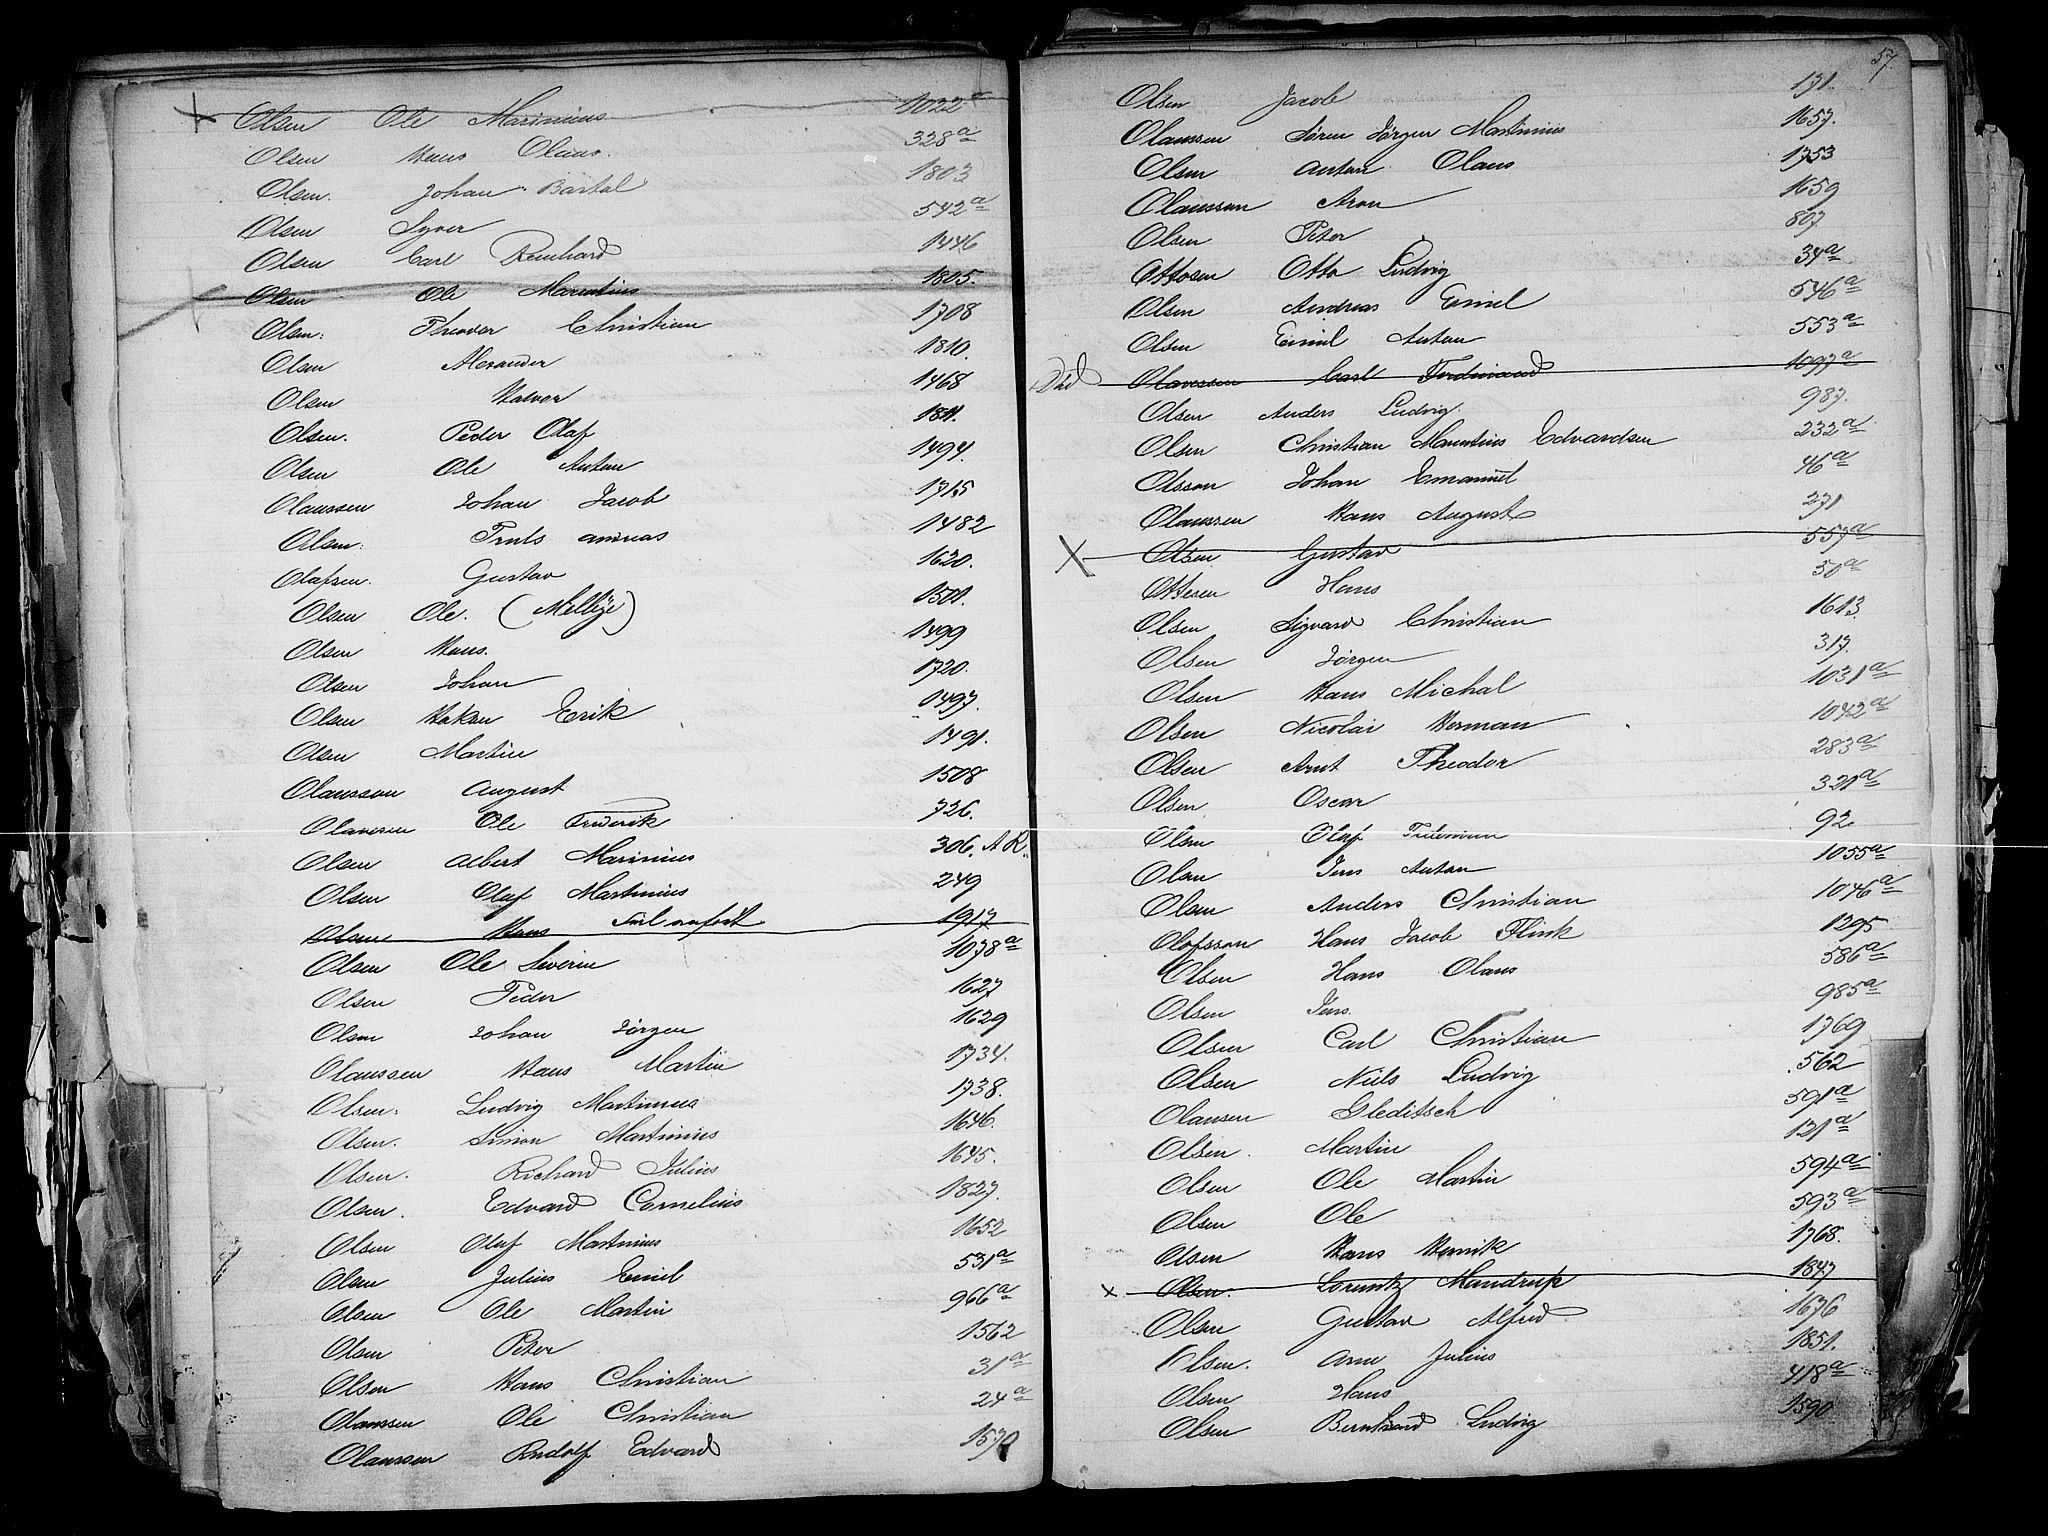 Olsen Ole Marinius 1022a
Olsen Hans Olaus. 328a
Olsen. Johan Bartol 1803
Olsen Syver 542a
Olsen Carl Reinhard 1446
Olsen Ole Martinius 1805.
Olsen. Theodor Christian 1708
Olsen Alexander 1810.
Olsen Halvor 1468
Olsen. Peder Olaf 1811.
Olsen Ole Anton 1494.
Olaussen Johan Jacob 1715
Olsen. Truls Andreas 1482
Olafsen. Gustav 1620.
Olsen Ole. (Mellbye) 1501.
Olsen Hans. 1499
Olsen Johan 1720.
Olsen Haken Erik 1497.
Olsen Martin 1491.
Olausson August 1508
Olavesen Ole Frederik 726.
Olsen Albert Marinius 306. A R.
Olsen Olaf Martinius 249
Olsen Hans 1917
Olsen Ole Severin 1078a
Olsen Peder 1627
Olsen Johan Jørgen 1629
Olaussen Hans Martin 1734.
Olsen. Ludvig Martinius 1738.
Olsen. Simon Martinius 1646.
Olsen. Richard Julius 1645.
Olsen. Edvard Cornelius 1827.
Olsen Oluf Martinius 1652
Olsen Julius Emil 531a
Olsen Ole Martin 966a
Olsen Peter 1562
Olsen Hans Christian 31a
Olaussen Ole Christian 24a
Olaussen Rudolf Edvard 1570
57.
Olsen Jacob 131.
Olaussen Søren Jørgen Martinius 1657.
Olsen Anton Olaus 1753
Olausson Aron 1659
Olsen Peter 807.
Ottosen Otto Ludvig 34a
Olsen Andreas Emil 546a
Olsen Emil Anton 553a
Død Olavessen Carl Ferdinand 1097a
Olsen Anders Ludvig. 987.
Olsen Christian Mauritius Edvardsen 232a
Olsson Johan Emanuel 46a
Olaussen Hans August 271
Olsen Gustav 557a
Ottesen Hans 50a
Olsen Sigvard Christian 1613.
Olsen Jørgen 317.
Olsen Hans Michal 1031a
Olsen Nicolai Herman 1042a
Olsen Arnt Theodor 283a
Olsen Oscar 321a
Olsen Olaf 92.
Olsen Jens Anton 1055a
Olsen Anders Christian 1046a
Olofsson Hans Jacob Flink 1295
Olsen Hans Olaus 586a
Olsen Jens. 985a
Olsen Carl Christian 1769
Olsen Niels Ludvig 562
Olausen Gleditsch 591a
Olsen. Martin 121a
Olsen Ole Martin 594a
Olsen Ole 593a
Olsen Hans Henrik 1768.
Olsen. Lorentz Mandrup 1847
Olsen Gustav Alfred 1676
Olsen. Arne Julius 1851.
Olsen Hans 418a
Olsen Bernhard Ludvig 1590